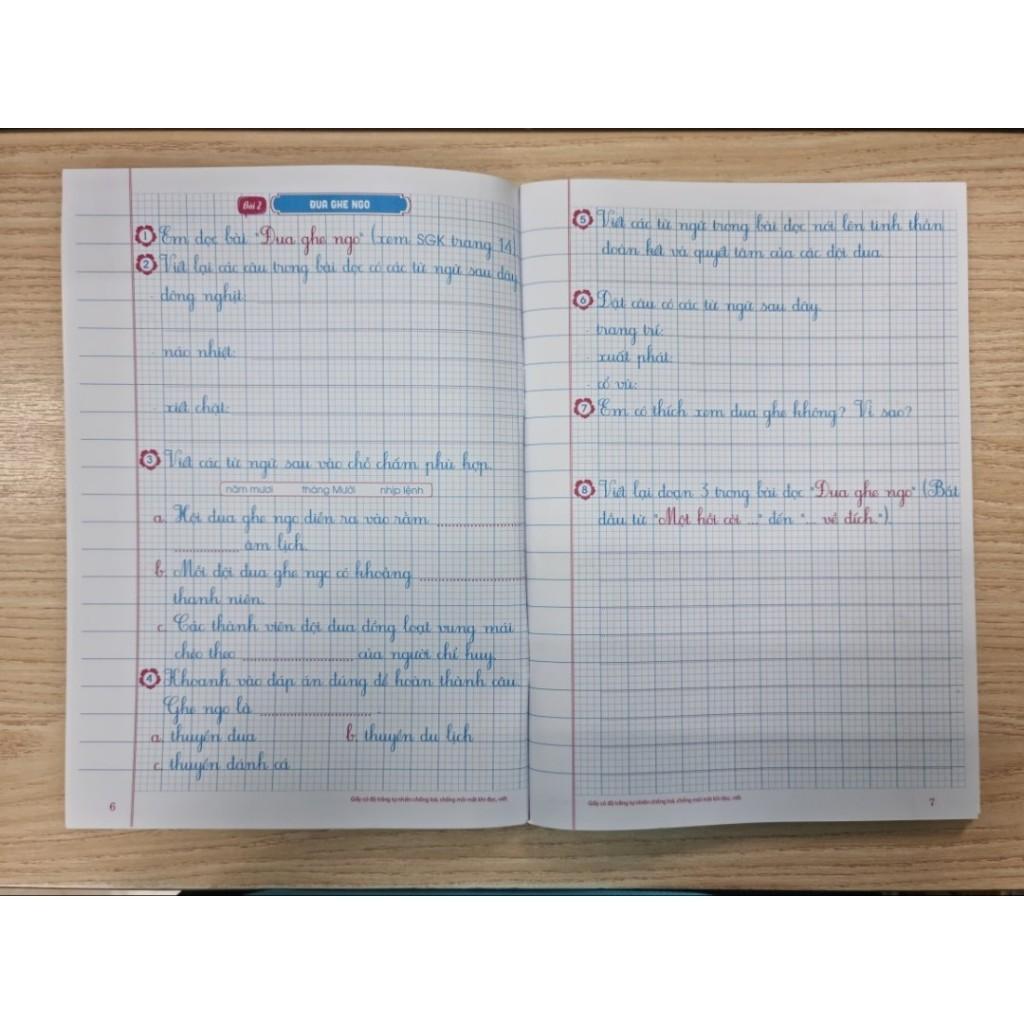 Bài 2
ĐUA GHE NGO
1 Em đọc bài "Đua ghe ngo" (xem SGK trang 14).
2 Viết lại các câu trong bài đọc có các từ ngữ sau đây.
- đông nghịt:
- náo nhiệt:
- xiết chặt:
3 Viết các từ ngữ sau vào chỗ chấm phù hợp.
năm mươi tháng Mười nhịp lệnh
a. Hội đua ghe ngo diễn ra vào rằm ....................
............... âm lịch.
b. Mỗi đội đua ghe ngo có khoảng ....................
thanh niên.
c. Các thành viên đội đua đồng loạt vung mái
chèo theo .................... của người chỉ huy.
4 Khoanh vào đáp án đúng để hoàn thành câu.
Ghe ngo là .................... .
a. thuyền đua b. thuyền du lịch
c. thuyền đánh cá
6
Giấy có độ trắng tự nhiên chống loá, chống mỏi mắt khi đọc, viết.
5 Viết các từ ngữ trong bài đọc nói lên tinh thần
đoàn kết và quyết tâm của các đội đua.
6 Đặt câu có các từ ngữ sau đây.
- trang trí:
- xuất phát:
- cổ vũ:
7 Em có thích xem đua ghe không? Vì sao?
8 Viết lại đoạn 3 trong bài đọc "Đua ghe ngo" (Bắt
đầu từ "Một hồi còi ..." đến "... về đích.").
Giấy có độ trắng tự nhiên chống loá, chống mỏi mắt khi đọc, viết.
7